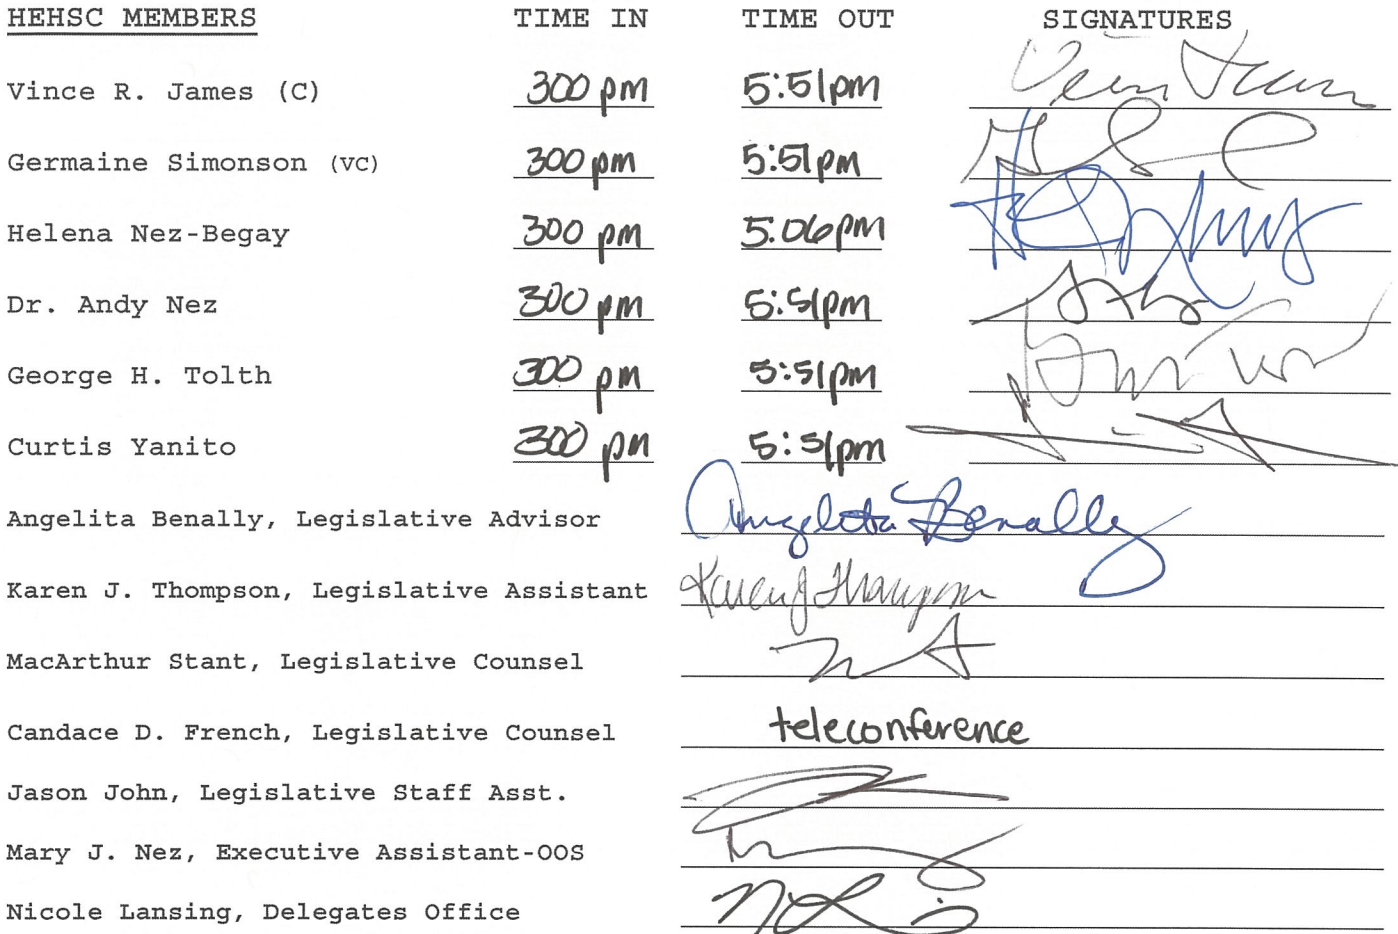 HEHSC MEMBERS TIME IN TIME OUT SIGNATURES
Vince R. James (C) 300 pm 5:51pm
Germaine Simonson (VC) 300 pm 5:51pm
Helena Nez-Begay 300 pm 5:06pm
Dr. Andy Nez 300 pm 5:51pm
George H. Tolth 300 pm 5:51pm
Curtis Yanito 300 pm 5:51pm
Angelita Benally, Legislative Advisor Angelita Benally
Karen J. Thompson, Legislative Assistant Karen J Thompson
MacArthur Stant, Legislative Counsel
Candace D. French, Legislative Counsel teleconference
Jason John, Legislative Staff Asst.
Mary J. Nez, Executive Assistant-OOS
Nicole Lansing, Delegates Office